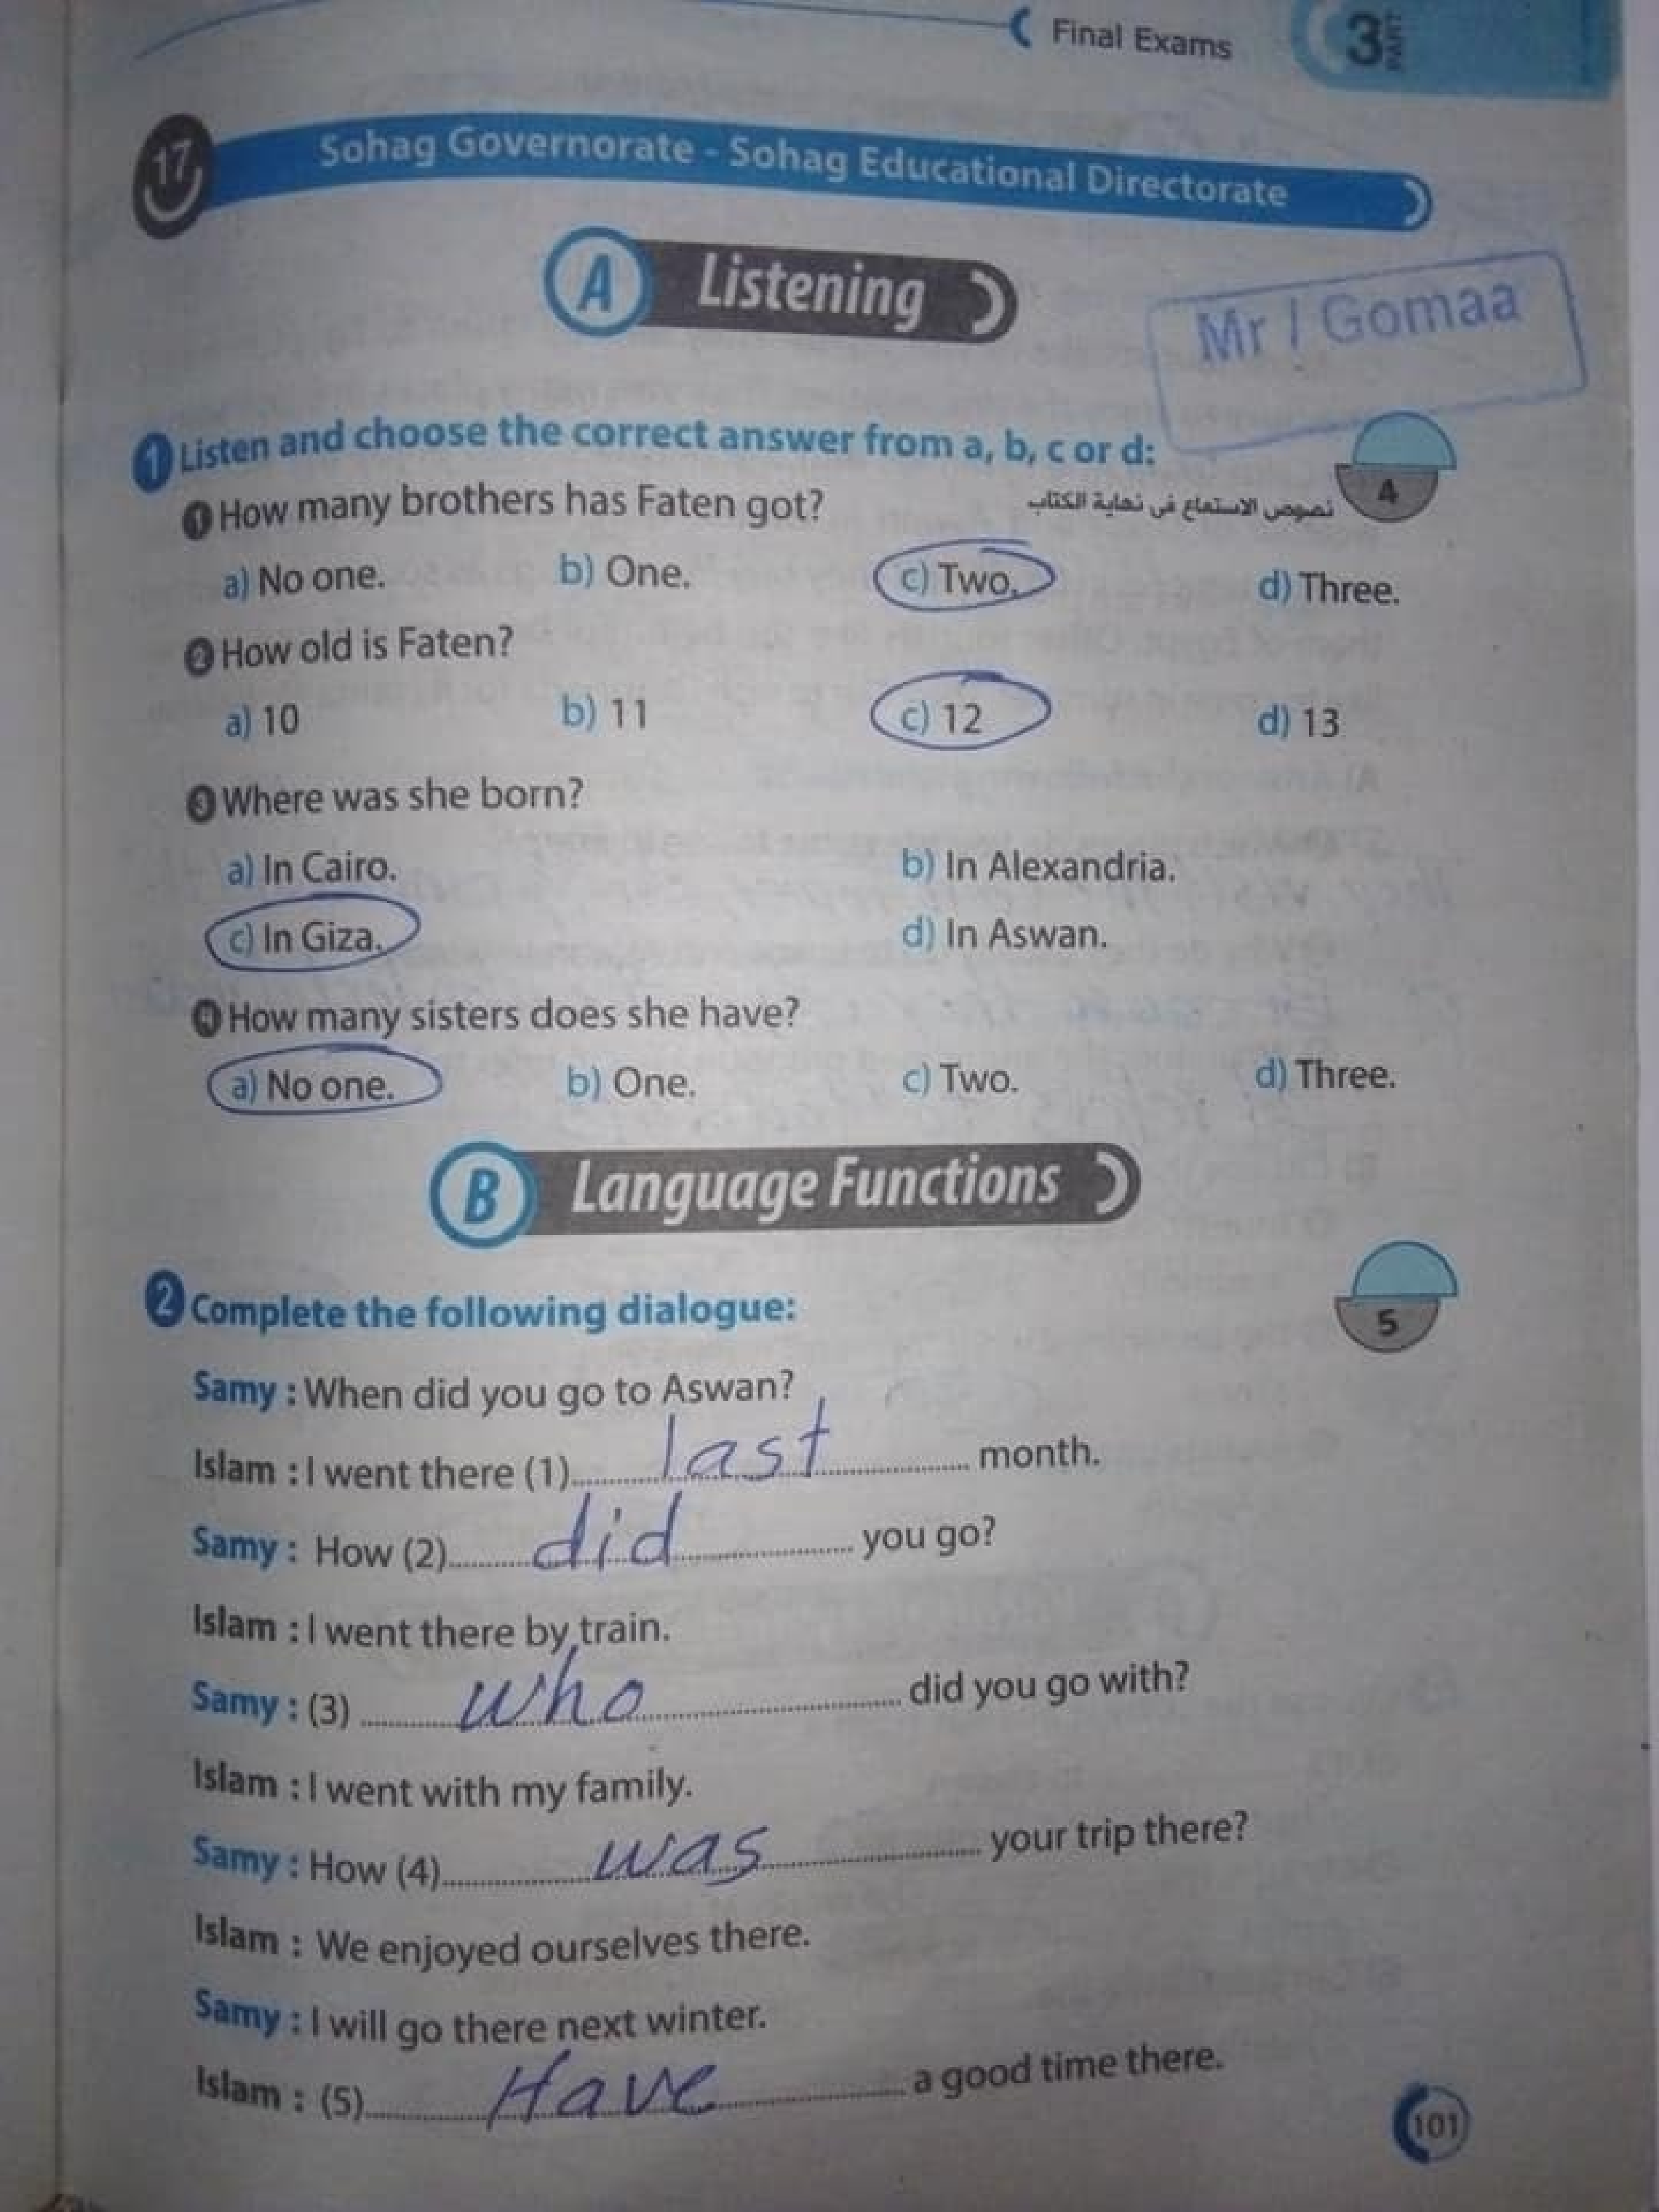 Final Exams
3 PART
17
Sohag Governorate - Sohag Educational Directorate
A Listening
Mr / Gomaa
1 Listen and choose the correct answer from a, b, c or d:
4
1 How many brothers has Faten got?
نصوص الاستماع فى نهاية الكتاب
a) No one. b) One. c) Two. d) Three.
2 How old is Faten?
a) 10 b) 11 c) 12 d) 13
3 Where was she born?
a) In Cairo. b) In Alexandria.
c) In Giza. d) In Aswan.
4 How many sisters does she have?
a) No one. b) One. c) Two. d) Three.
B Language Functions
2 Complete the following dialogue:
5
Samy : When did you go to Aswan?
Islam : I went there (1) last month.
Samy : How (2) did you go?
Islam : I went there by train.
Samy : (3) who did you go with?
Islam : I went with my family.
Samy : How (4) was your trip there?
Islam : We enjoyed ourselves there.
Samy : I will go there next winter.
Islam : (5) Have a good time there.
101